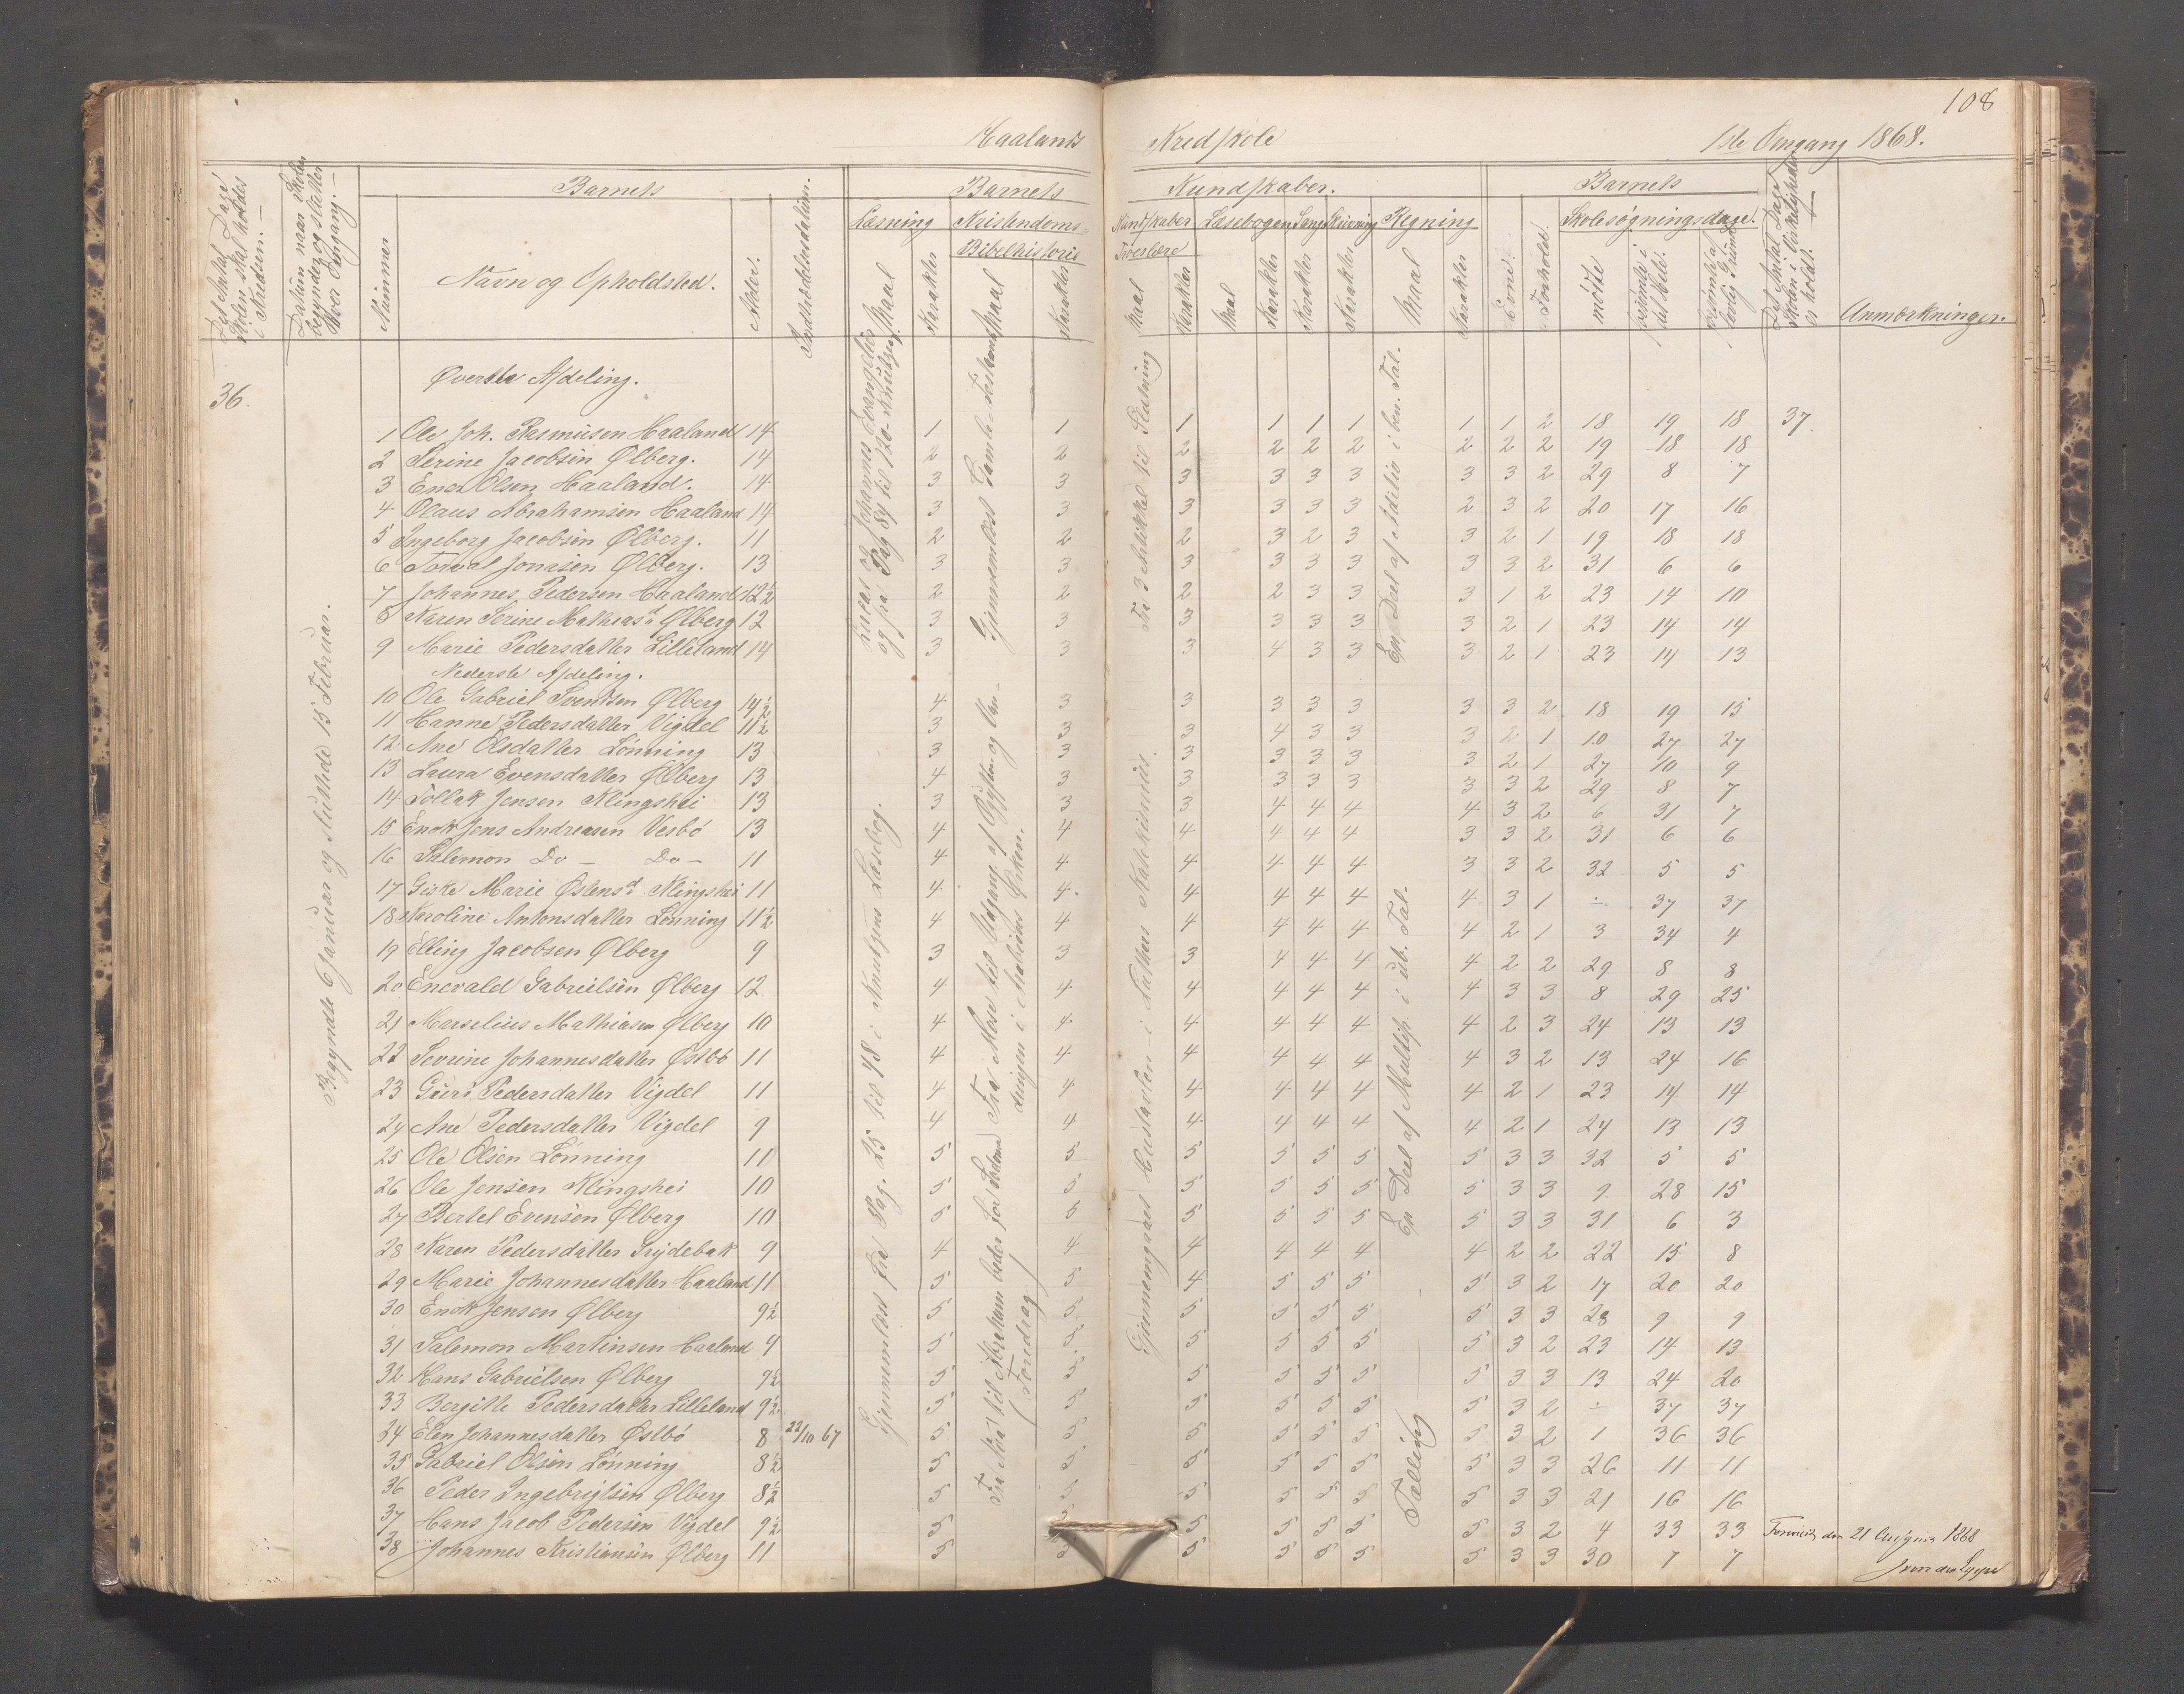 108
Haalands Kredskole 1ste Omgang 1868.
Det Antal Dage Skolen skal holdes i Kredsen. —
Datum naar Skolen begynder og slutter hver Omgang. —
Barnets
Nummer
Navn og Opholdsted.
Alder.
Indtrædelsesdatum.
Barnets Kundskaber.
Læsning
Maal
Karakter
Kristendoms-
Bibelhistorie
Maal
Karakter
Kundskaber
Troeslære
Maal
Karakter
Læsebogen
Maal
Karakter
Sang
Karakter
Skrivning
Karakter
Regning
Maal
Karakter
Barnets
Evne.
Forhold.
Skolesøgningsdage.
mødte
forsømte i det Hele.
forsømte af lovlig Grund
Det Antal Dage Skolen i Virkeligheden er holdt.
Anmærkninger.
36.
Begyndte 6 Januar og sluttede 15 Februar.
Øverste Afdeling.
1 Ole Joh. Rasmusen Haaland 14 1 1 1 1 1 1 1 1 2 18 19 18 37.
2 Serine Jacobsen Ølberg. 14 2 2 2 2 2 2 2 2 2 19 18 18
3 Enok Olsen Haaland. 14 3 3 3 3 3 3 3 3 2 29 8 7
4 Olaus Abrahamsen Haaland 14 3 3 3 3 3 3 2 3 2 20 17 16
5 Ingeborg Jacobsen Ølberg. 11 2 2 2 3 2 3 3 2 1 19 18 18
6 Torval Jonasen Ølberg. 13 3 3 3 3 3 3 3 3 2 31 6 6
7 Johannes Pedersen Haaland 12½ 2 2 2 2 3 3 3 1 2 23 14 10
8 Karen Serine Mathiasd Ølberg 12 3 3 3 3 3 3 3 2 1 23 14 14
9 Marie Pedersdatter Lilleland 14 3 3 3 4 3 3 3 2 1 23 14 13
Nederste Afdeling.
10 Ole Gabriel Svendsen Ølberg 14½ 4 3 3 3 3 3 3 3 2 18 19 15
11 Hanne Pedersdatter Vigdel 11½ 3 3 3 4 3 3 3 2 1 10 27 27
12 Ane Olsdatter Lønning 13 3 3 3 3 3 3 3 2 1 27 10 9
13 Laura Evensdatter Ølberg 13 4 3 3 3 3 3 3 3 2 29 8 7
14 Tollak Jensen Klingshei 13 3 3 3 4 4 4 4 3 2 6 31 7
15 Enok Jens Andreasen Vesbö 13 4 4 4 4 4 4 3 3 2 31 6 6
16 Salemon Do — Do — 11 4 4 4 4 4 4 3 3 2 32 5 5
17 Giske Marie Østensd Klingshei 11 4 4 4 4 4 4 4 3 1 ÷ 37 37
18 Karoline Antonsdatter Lønning 11½ 4 4 4 4 4 4 4 2 1 3 34 4
19 Elling Jacobsen Ølberg 9 3 3 3 4 4 4 4 2 2 29 8 8
20 Enevald Gabrielsen Ølberg 12 4 4 4 4 4 4 4 3 3 8 29 25
21 Marselius Mathiasen Ølberg 10 4 4 4 4 4 4 4 2 3 24 13 13
22 Sevrine Johannesdatter Østbö 11 4 4 4 4 4 4 4 3 2 13 24 16
23 Guri Pedersdatter Vigdel 11 4 4 4 4 4 4 4 2 1 23 14 14
24 Ane Pedersdatter Vigdel 9 4 4 4 4 4 4 4 2 1 24 13 13
25 Ole Olsen Lønning 11 5 5 5 5 5 5 5 3 3 32 5 5
26 Ole Jensen Klingshei 10 5 5 5 5 5 5 5 3 3 9 28 15
27 Bertel Evensen Ølberg 10 5 5 5 5 5 5 5 3 3 31 6 3
28 Karen Pedersdatter Snydebak 9 4 4 4 4 4 4 4 2 2 22 15 8
29 Marie Johannesdatter Haaland 11 5 5 4 5 5 5 5 3 2 17 20 20
30 Enok Jensen Ølberg 9½ 5 5 5 5 5 5 5 3 3 28 9 9
31 Salemon Martinsen Haaland 9 5 5 5 5 5 5 5 3 2 23 14 13
32 Hans Gabrielsen Ølberg 9½ 5 5 5 5 5 5 5 3 3 13 24 20
33 Bergitte Pedersdatter Lilleland 9½ 5 5 5 5 5 5 5 3 2 ÷ 37 37
34 Elen Johannesdatter Østbö 8 22/10 67 5 5 5 5 5 5 5 3 2 1 36 36
35 Gabriel Olsen Lønning 8½ 5 5 5 5 5 5 5 3 3 26 11 11
36 Peder Ingebrigtsen Ølberg 8½ 5 5 5 5 5 5 5 3 3 21 16 16
37 Hans Jacob Pedersen Vigdel 9½ 5 5 5 5 5 5 5 3 2 4 33 33
38 Johannes Kristiansen Ølberg 11 5 5 5 5 5 5 5 3 3 30 7 7
Lucas og Johannes Evangelier
og fra Pag 84 til 120 - Knutzen
Gjennemlæst Gamle Testament
Fra 3 Artikkel til Slutning
En Deel af Additio i ben. Tal.
Gjennemlæst fra Pag. 25 til 48 i Knutzens Læsebog.
Fra Mose til Udgang af Ægypten og Van-
dringen i Arabiens Ørken.
Fra Noa til Abraham beder for Sodoma
(Foredrag)
Gjennemgaaet Hustavlen i Luthers Katekismus.
En Deel af Multip. i ub. Tal.
Tælling
den 21 August 1868